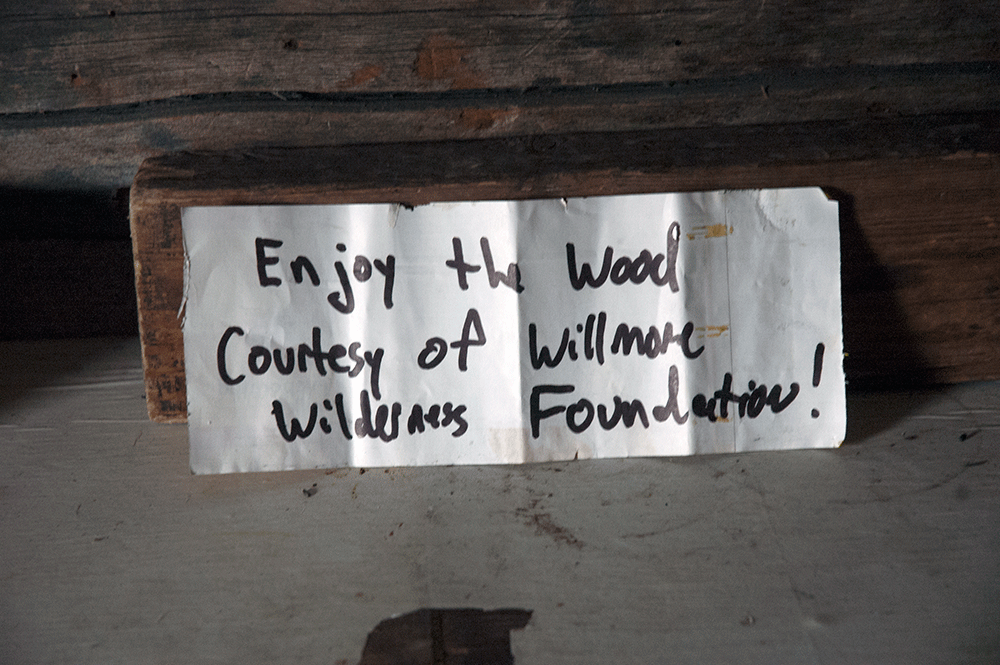 Enjoy the Wood
Courtesy of Willmore
Wilderness Foundation!